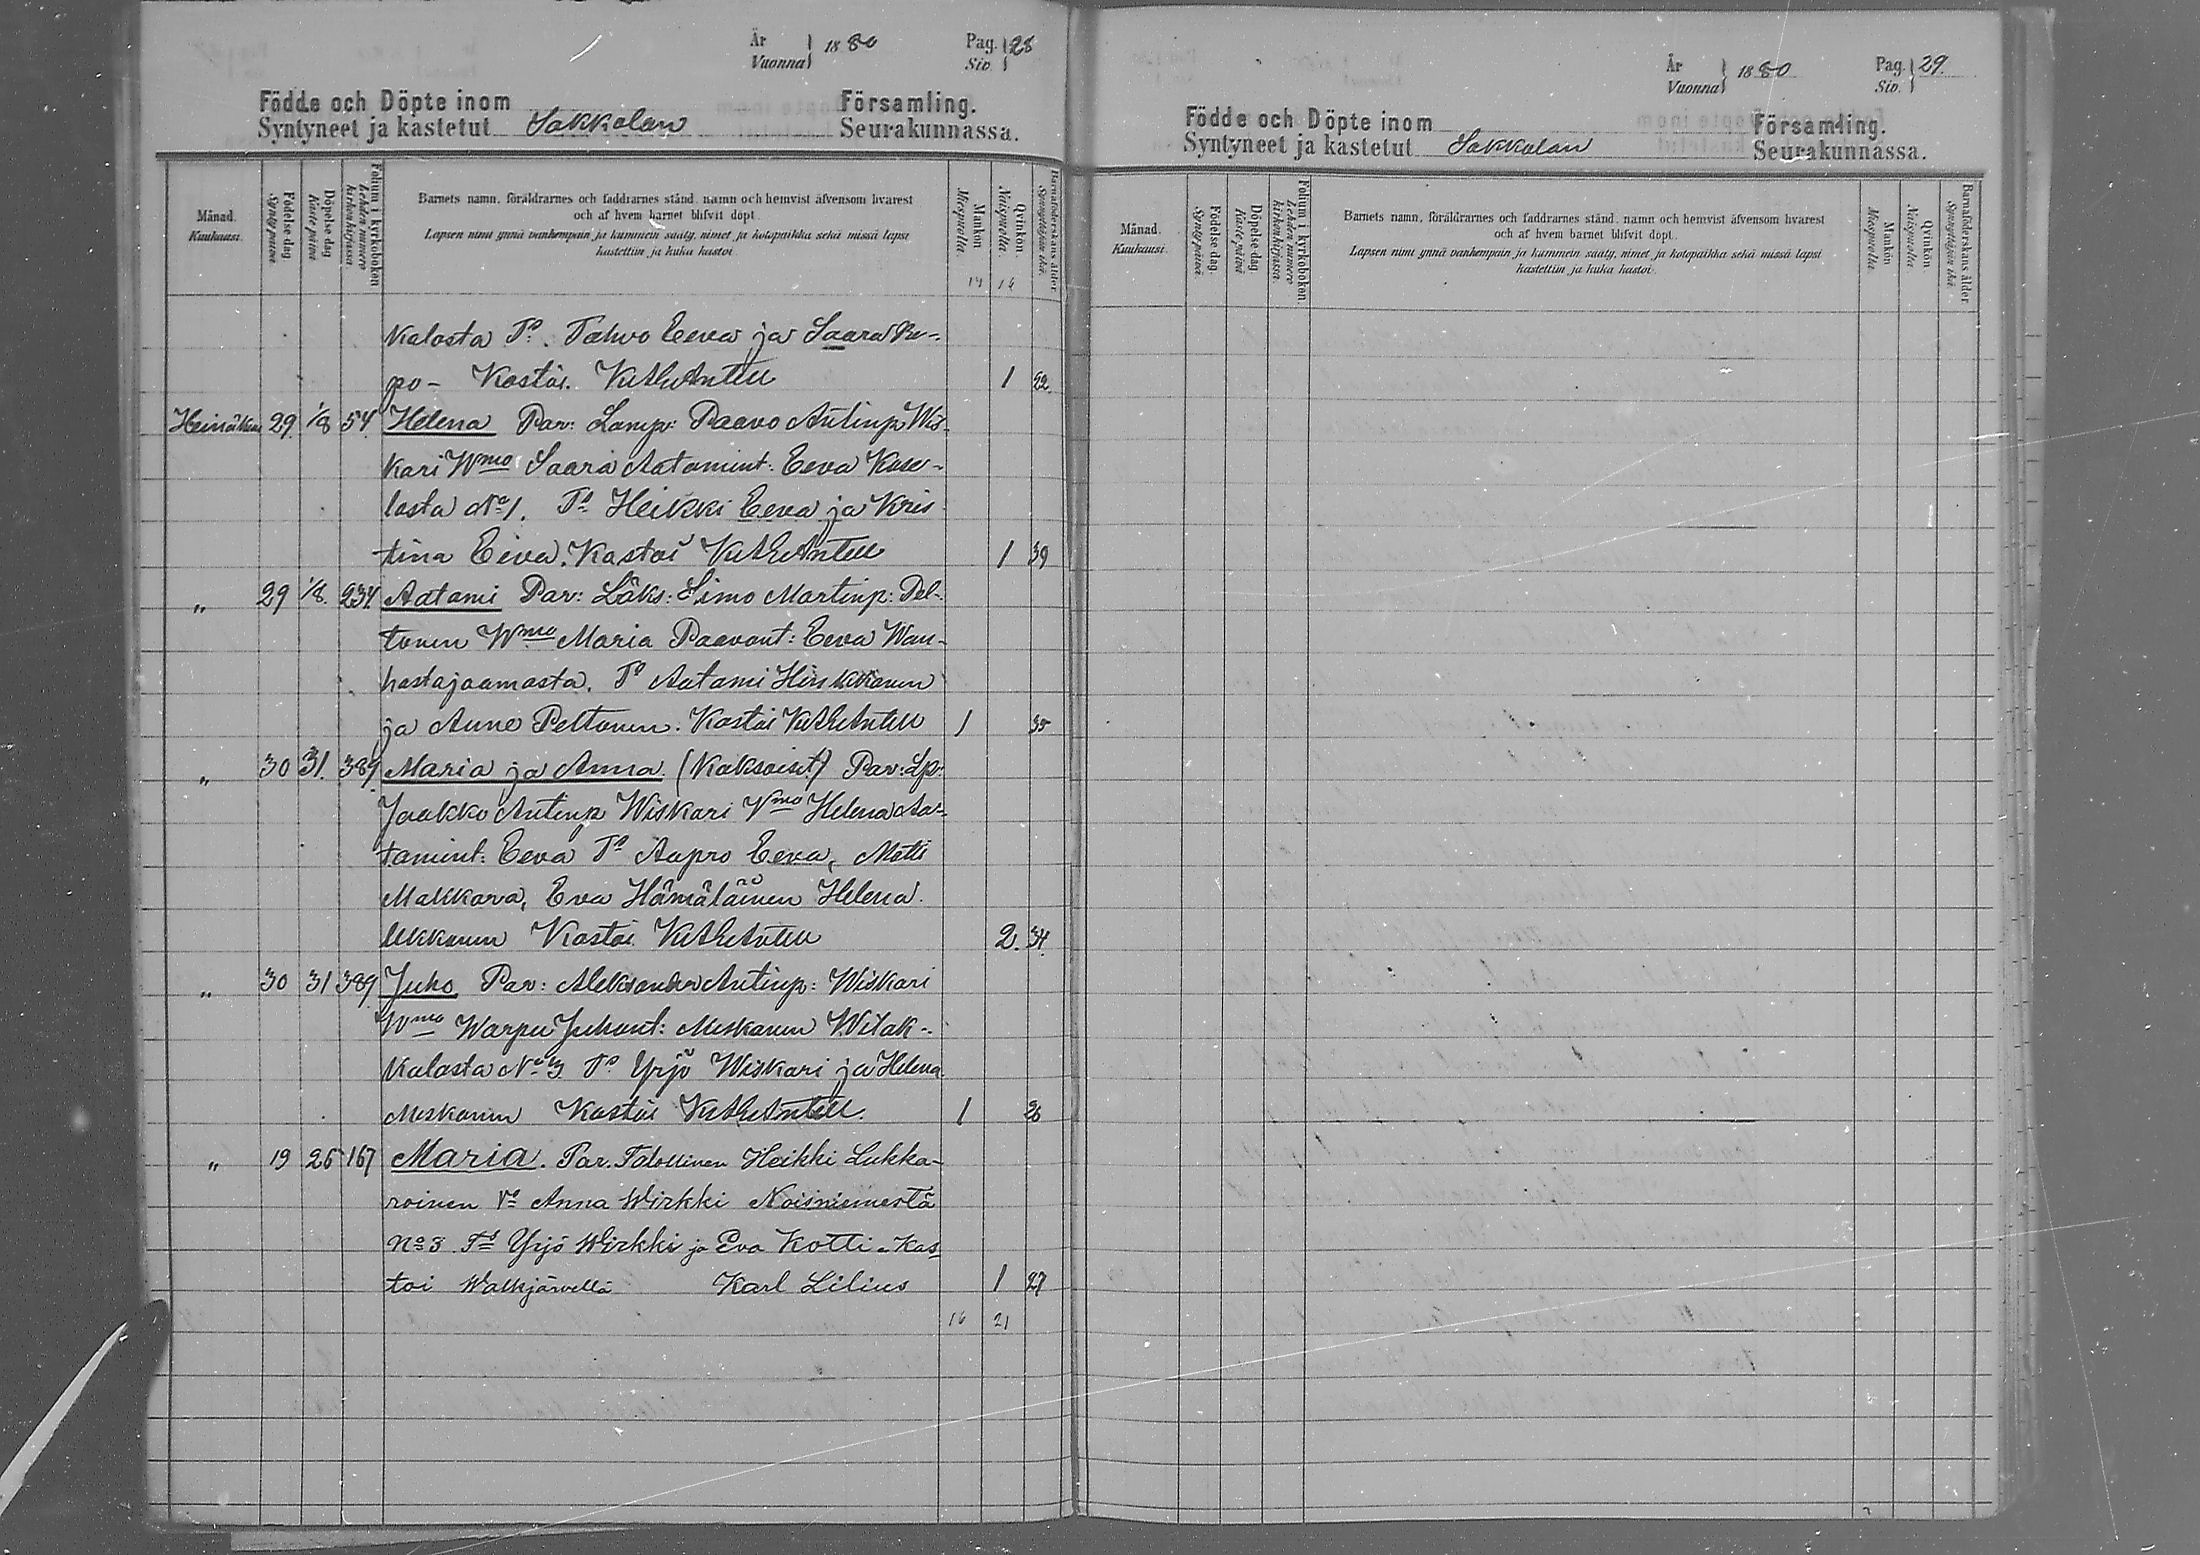 År Vuonna 1880 Pag. Siv. 28
Födde och Döpte inom Församling.
Syntyneet ja kastetut Sakkolan Seurakunnassa.
Månad. Kuukausi.
Födelse dag Syntypäivä
Döpelse dag Kastepäivä
Folium i kyrkoboken Lehden numero kirkonkirjassa
Barnets namn, föräldrarnes och faddrarnes stånd, namn och hemvist äfvensom hvarest
och af hvem barnet blifvit döpt.
Lapsen nimi ynnä vanhempain ja kummein sääty, nimet ja kotopaikka sekä missä lapsi
kastettiin ja kuka kastoi.
Mankön Miespuolia.
Qvinkön. Naispuolia.
Barnaföderskans ålder Synnyttäjän ikä.
14 14
kalasta Ts. Tahvo Eeva ja Saara Re-
po - Kastoi. 1 22
Heinäkuu 29. 1/8 54 Helena Par: Lamp: Paavo Antinp Wis-
kari Wmo Saara Aatamint: Eeva Kase-
lasta No 1. Ts Heikki Eeva ja Kris
tina Eeva. Kastoi 1 39
" 29 1/8. 234 Aatami Par: Läks: Simo Martinp: Pel-
tonen Wmo Maria Paavont: Eeva Wan-
hastajaamasta. Ts Aatami Hinkkanen
ja Anne Peltonen. Kastoi 1 35
" 30 31. 389 Maria ja Anna (Kaksoiset) Par: Lp:
Jaakko Antinp Wiskari Vmo Helena Aa-
tamint: Eeva Ts Aapro Eeva, Matti
Makkara, Eva Hämäläinen Helena
Ukkonen Kastoi 2. 34.
" 30 31 389 Juho Par: Aleksander Antinp: Wiskari
Wmo Warpu Juhont: Meskanen Witak-
kalasta No 3 Ts Yrjö Wiskari ja Helena
Meskanen Kastoi 1 26
" 19 26 167 Maria. Par. Talollinen Heikki Lukka-
roinen Vo Anna Wirkki Noisniemestä
No 3 Ts Yrjö Wirkki ja Eva Kotti. Kas
toi Walkjärvellä Karl Lilius 1 27
16 21
År Vuonna 1880 Pag. Siv. 29.
Födde och Döpte inom Församling.
Syntyneet ja kastetut Sakkolan Seurakunnassa.
Månad. Kuukausi.
Födelse dag. Syntypäivä
Döpelse dag Kastepäivä
Folium i kyrkoboken. Lehden numero kirkonkirjassa.
Barnets namn, föräldrarnes och faddrarnes stånd, namn och hemvist äfvensom hvarest
och af hvem barnet blifvit döpt.
Lapsen nimi ynnä vanhempain ja kummein sääty, nimet ja kotopaikka sekä missä lapsi
kastettiin ja kuka kastoi.
Mankön Miespuolia.
Qvinkön Naispuolia.
Barnaföderskans ålder Synnyttäjän ikä.